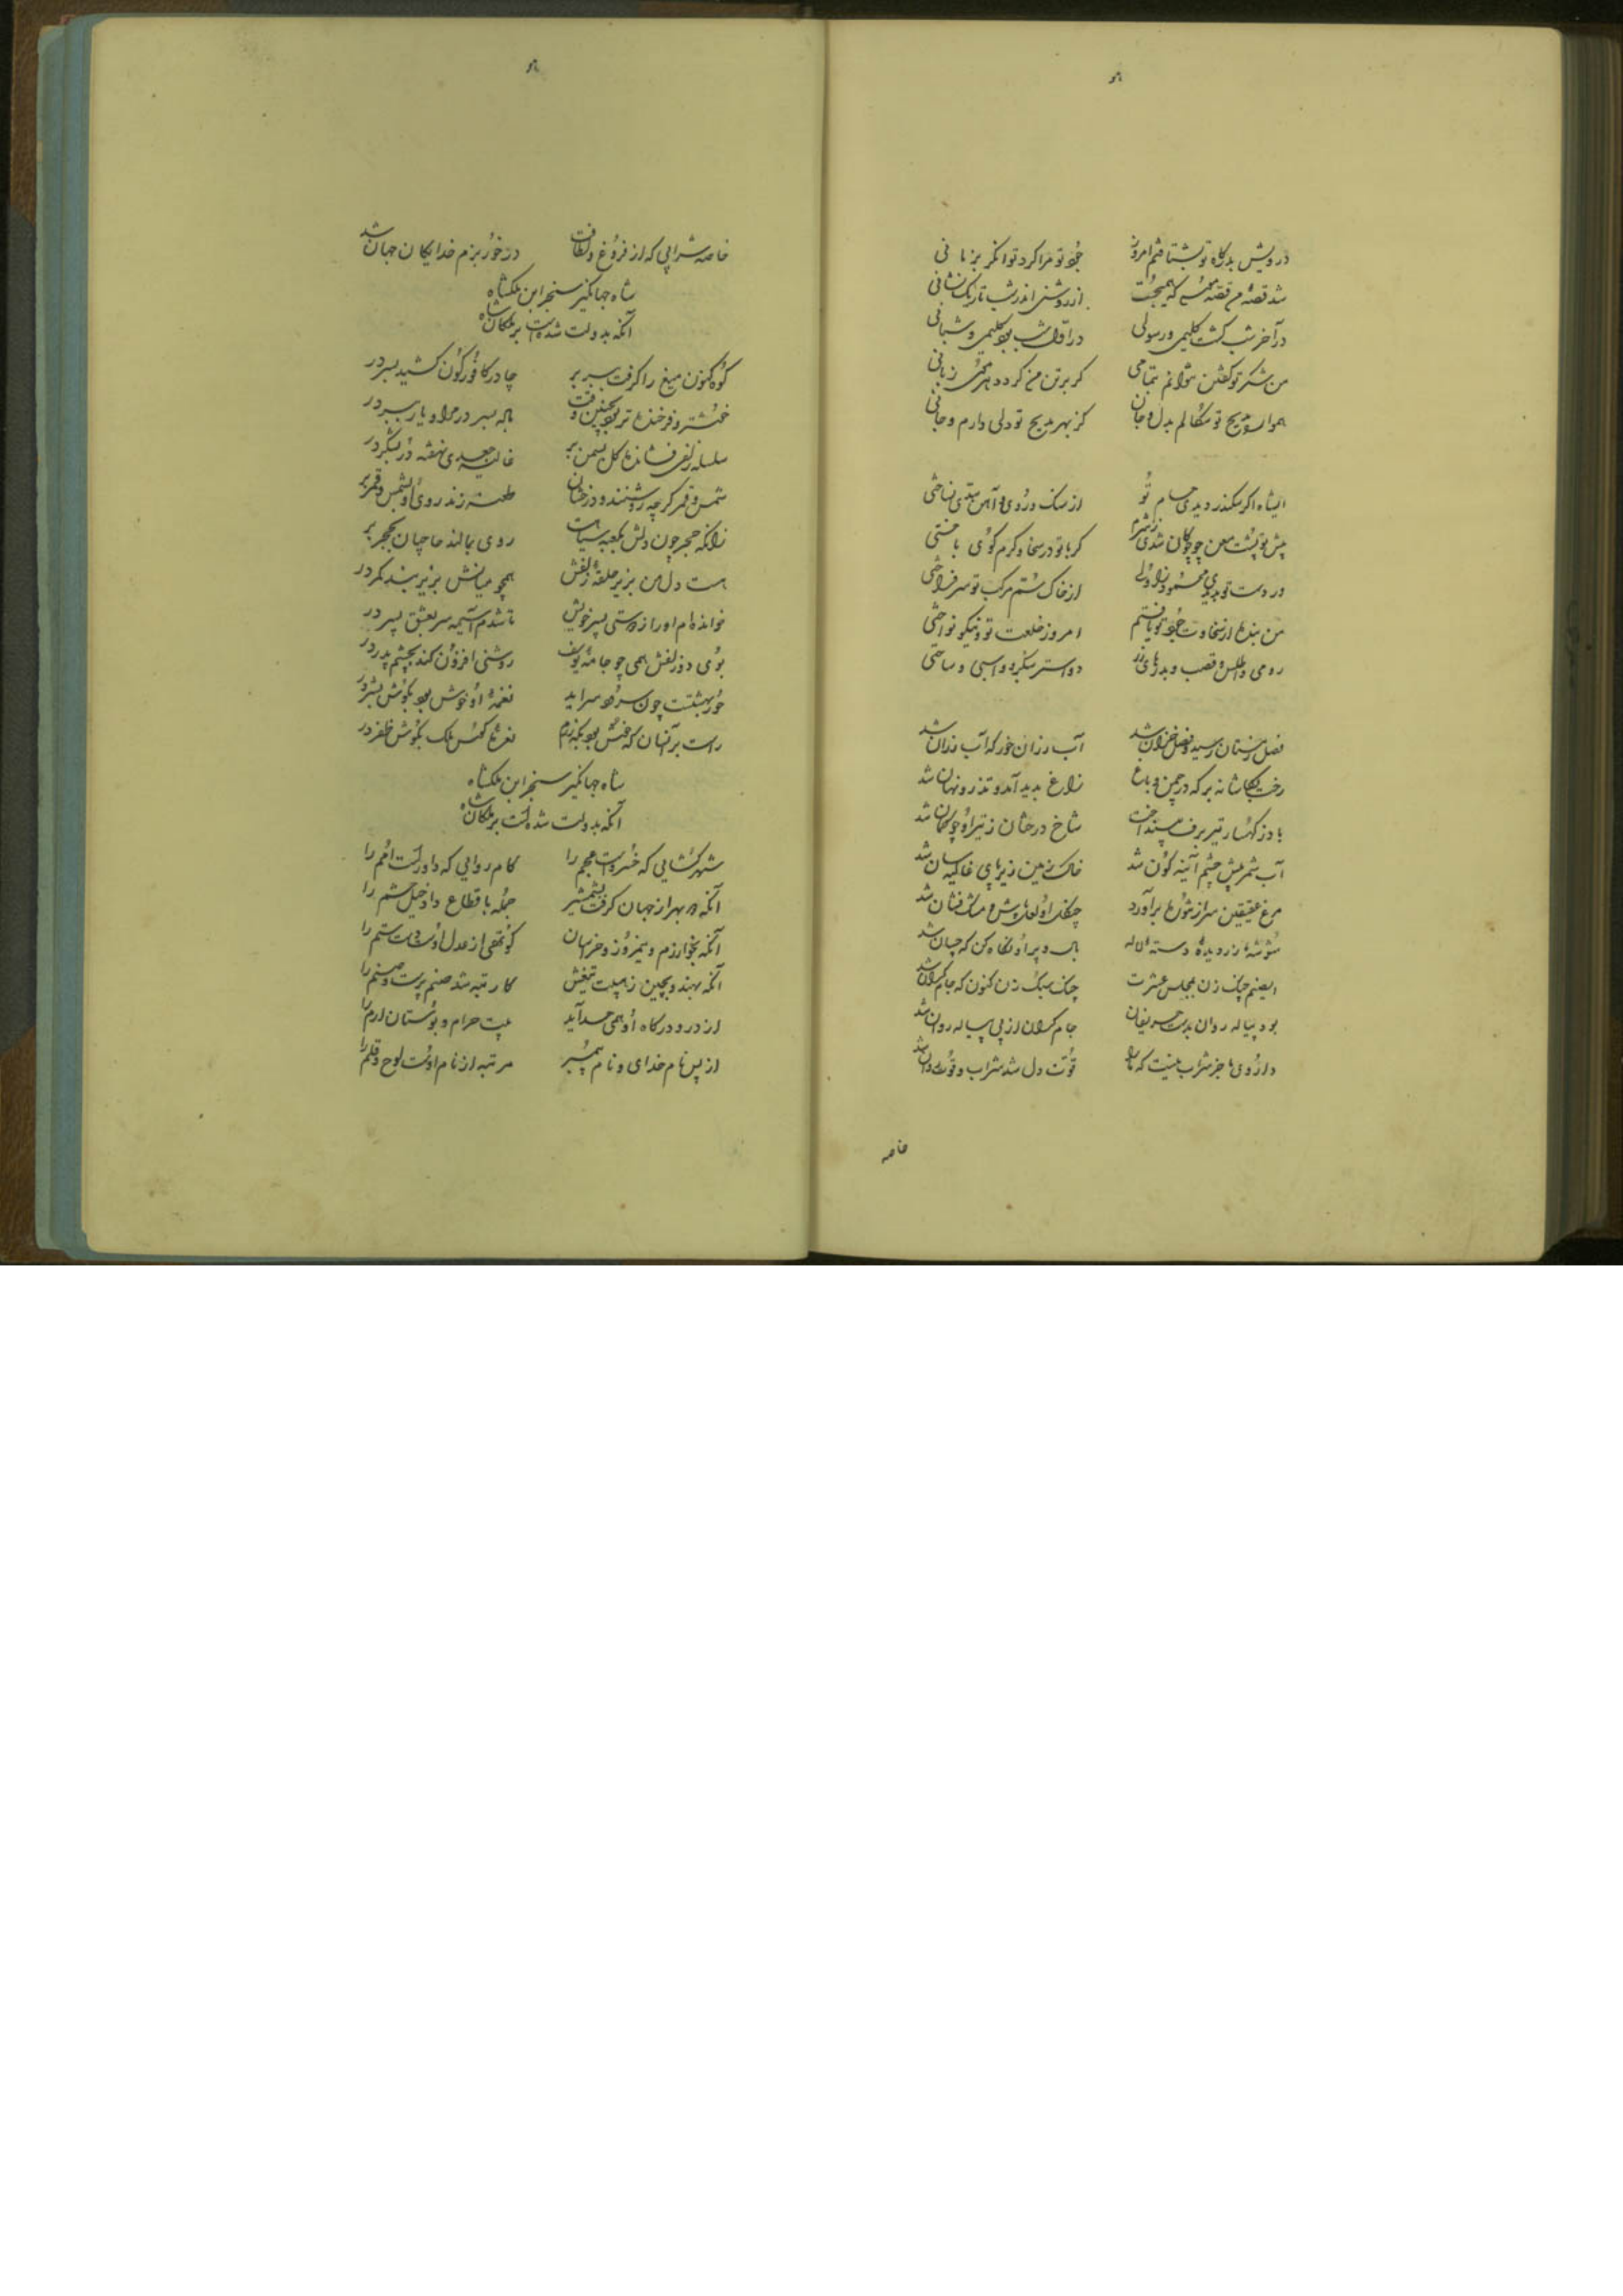 درویش بدرگاه تو بشتافتم امروز جود تو مرا کرد توانگر بزمانی
شد قصهٔ من قصهٔ موسی که همی‌جست از روشنی اندر شب تاریک نشانی
در آخر شب گشت کلیمی و رسولی در اول شب بود کلیمی و شبانی
من شکر تو گفتن نتوانم بتمامی گر بر تن من گردد هر موی زبانی
همواره مدیح تو سگالم بدل و جان کز بهر مدیح تو دلی دارم و جانی
ایشاه اگر سکندر دیدی حسام تو از سنگ و روی و آهن سدی نساختی
پیش تو پشت معن چو چوگان شدی ز شرم گر با تو در سخا و کرم گوی باختی
ور دست تو بدیدی محمود زاولی از خاک سم مرکب تو سر فراختی
من بنده از سخاوت و جود تو یافتم امروز خلعت تو و نیکو نواختی
رومی و اطلس و قصب و بدرهای زر دو استر سبکرو و اسبی و ساختی
فصل زمستان رسید و فصل خزان شد آب رزان خور که آب رزان شد
رخت بکاشانه بر که در چمن و باغ زاغ پدید آمد و تذرو نهان شد
باد ز کهسار تیر برف بینداخت شاخ درختان ز تیر او چو کمان شد
آب شمر پیش چشم آینه گون شد خاک زمین زیر پای خاکیسان شد
مرغ عقیقین سر از تنورها برآورد چنگل او لعل پوش و مشک فشان شد
شوشهٔ زر دیدهٔ و دستهٔ لاله بال و پر او نگاه کن که چسان شد
ای صنم چنگ زن بمجلس عشرت چنگ سبک زن کنون که جام گران شد
بود پیاله روان بدست حریفان جام گران از پی پیاله روان شد
داروی ما جز شراب نیست که ما را قوت دل شد شراب و قوت روان شد
خاصه
خاصه شرابی که از فروغ و لطافت در خور بزم خدایگان جهان شد
شاه جهانگیر سنجر ابن ملکشاه
آنکه بدولت شدست بر ملکان شاه
کوه کنون میغ را گرفت ببر بر چادر کافور گون کشید بسر در
خوشتر و فرخنده‌تر بود بچنین وقت باله بسر در مرا و یار ببر در
سلسله زلفی فشانده گل بسمن بر غالیه جعدی نهفته در بشکر در
شمس و قمر گر چه روشنند و درخشان طعنه زند روی او بشمس و قمر بر
زانکه حجر چون دلش بکعبه سیاهست روی بمالند حاجیان بحجر بر
هست دل من بزیر حلقهٔ زلفش همچو میانش بزیر بند کمر در
خوانده‌ام او را ز دوستی پسر خویش تا شدم آسیمه سر بعشق پسر در
بوی دو زلفش همی چو جامهٔ یوسف روشنی افزون کند بچشم پدر در
حور بهشتست چون سرود سراید نغمهٔ او خوش بود بگوش بشر در
راست بر آنسان که خوش بود بگه رزم نعرهٔ کوس ملک بگوش ظفر در
شاه جهانگیر سنجر ابن ملکشاه
آنکه بدولت شدست بر ملکان شاه
شهر گشایی که خسروست عجم را کام روایی که داورست امم را
آنکه دو بهر از جهان گرفت بشمشیر جمله باقطاع داد خیل و حشم را
آنکه بخوارزم و نیمروز و خراسان کوتهی از عدل اوست دست ستم را
آنکه بهند و بچین ز هیبت تیغش کار تبه شد صنم پرست و صنم را
از در و درگاه او همی حسد آید بیت حرام و بوستان ارم را
از پس نام خدای و نام پیمبر مرتبه از نام اوست لوح و قلم را